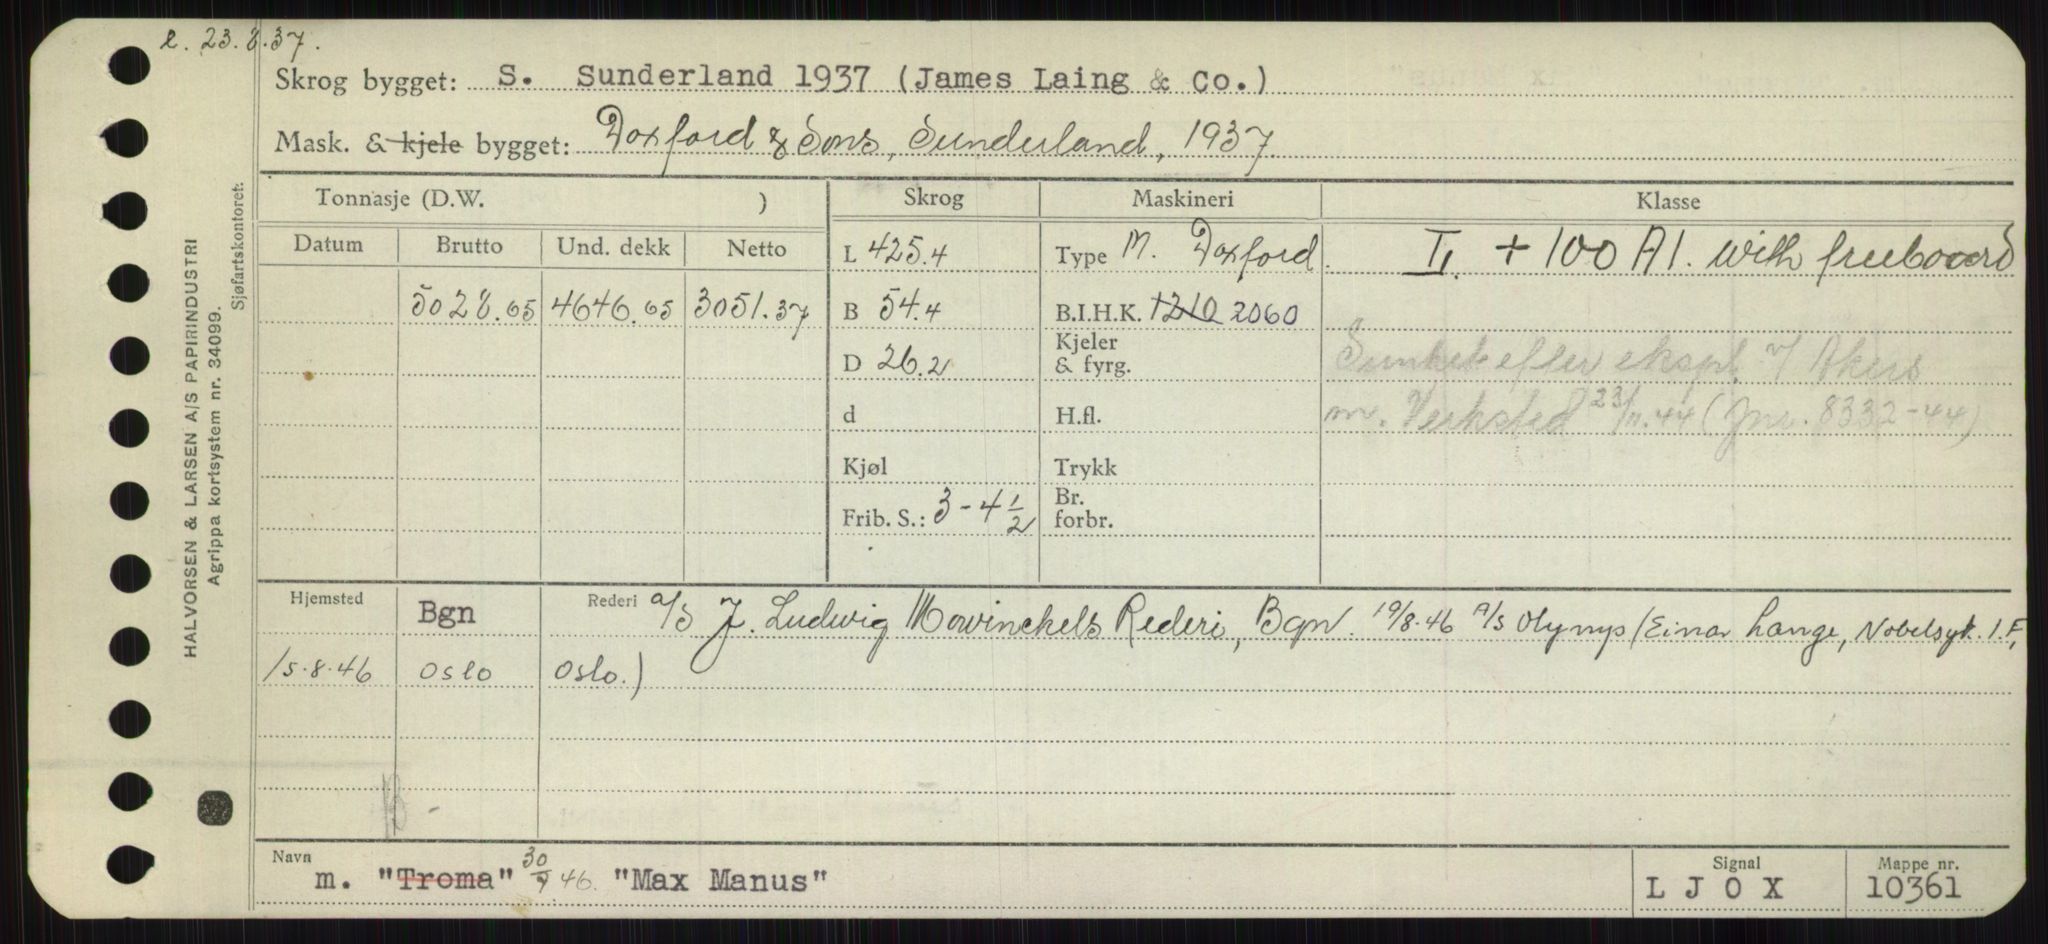 23.8.37.
Skrog bygget: S. Sunderland 1937 (James Laing & Co.)
Mask. & kjele bygget: Doxford & Sons, Sunderland, 1937
Tonnasje (D.W. ) Skrog Maskineri Klasse
Datum Brutto Und. dekk Netto L 425.4 Type M. Doxford. + 100 A1. with freeboard
5028.05 4646.05 3051.37 B 54.4 B.I.H.K. 1210 2060
D 26.2 Kjeler & fyrg. Sunket efter ekspl. v/ Akers
d H.fl. m. Verksted 23/11.44 (Jnr. 8332-44)
Kjøl Trykk
Frib. S.: 3-4 1/2 Br. forbr.
Hjemsted Bgn Rederi A/S J. Ludwig Mowinckels Rederi, Bgn. 19/8.46 A/S Olymps (Einar Lange, Nobelsgt. 1.F,
15.8.46 Oslo Oslo.)
Navn m. "Troma" 30/9 46. "Max Manus" Signal LJOX Mappe nr. 10361
HALVORSEN & LARSEN A/S PAPIRINDUSTRI
Agrippa kortsystem nr. 34099.
Sjøfartskontoret: